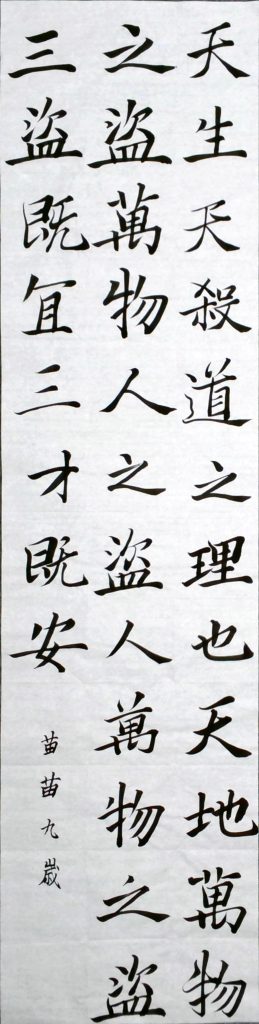 天生天殺道之理也天地萬物
之盜萬物人之盜人萬物之盜
三盜既宜三才既安
苗苗九歲